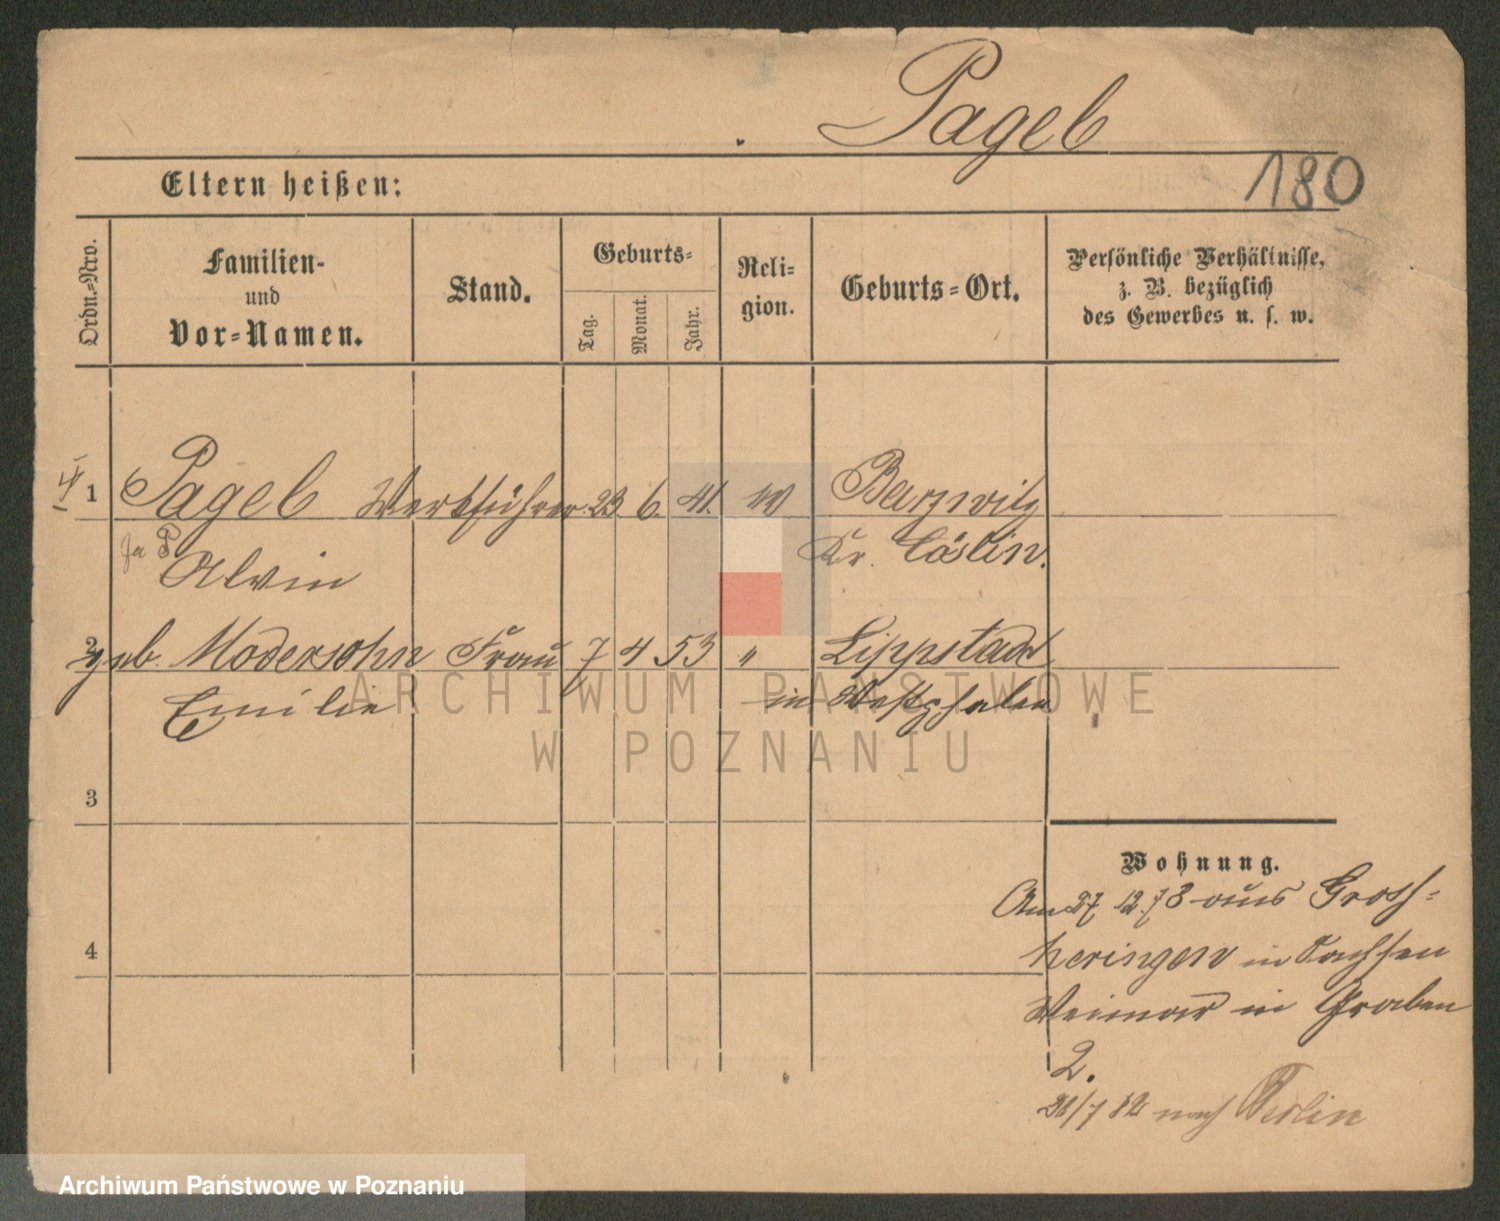 Pagel
180
Eltern heißen:
Ordn.-Nro.
Familien-
und
Vor-Namen.
Stand.
Geburts-
Tag.
Monat.
Jahr.
Reli-
gion.
Geburts-Ort.
Persönliche Verhältnisse,
z. B. bezüglich
des Gewerbes u. s. w.
1 Pagel Werkführer 23 6. 41. Barzwitz
Alvin Kr. Cöslin.
2 geb. Modersohn Frau 7 4 53 " Lippstadt
Emilie in Westphalen
3
4
Wohnung.
Am 27 12.78 aus Gross-
heringen in Sachsen
Weimar in Graben
2.
/7 82 nach Berlin
ARCHIWUM PAŃSTWOWE
W POZNANIU
Archiwum Państwowe w Poznaniu